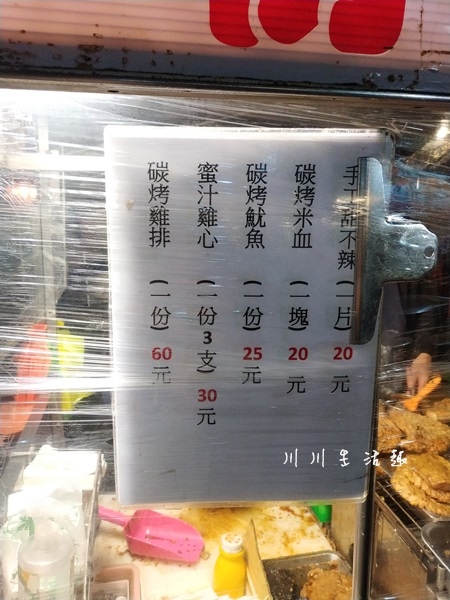 手工甜不辣(一片)20元
碳烤米血(一塊)20元
碳烤魷魚(一份)25元
蜜汁雞心(一份3支)30元
碳烤雞排(一份)60元
川川生活趣